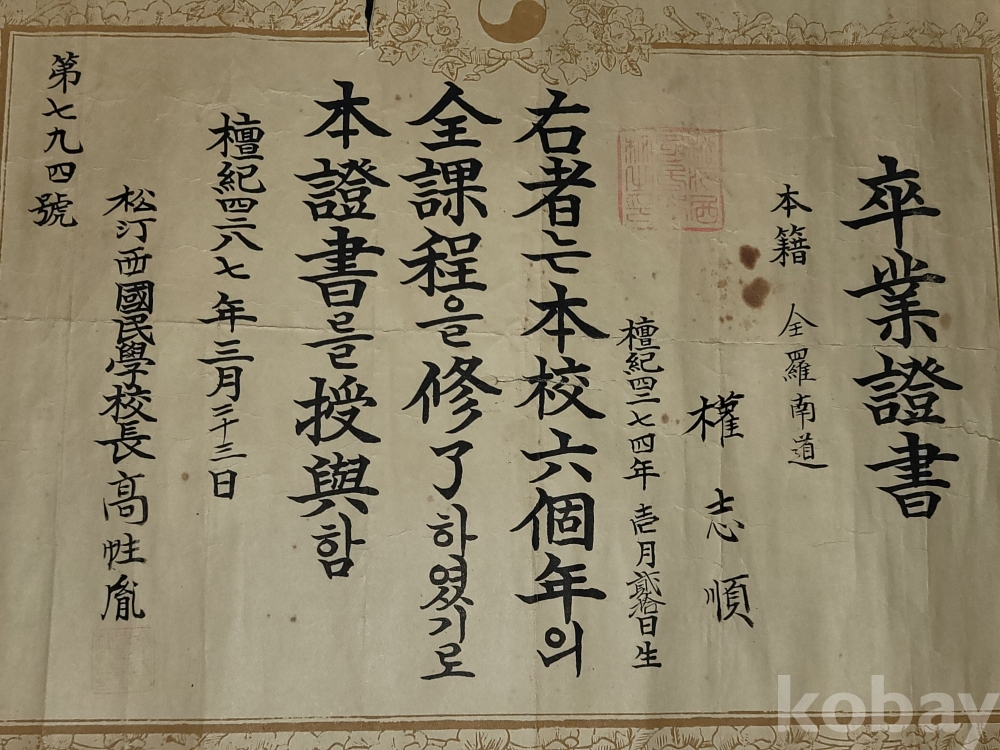 卒業證書
本籍 全羅南道
權志順
檀紀四二七四年壱月貳拾日生
右者는本校六個年의
全課程을修了하였기로
本證書를授與함
檀紀四二八七年三月二十三日
松汀西國民學校長 高 胤
第七九四號
kobay